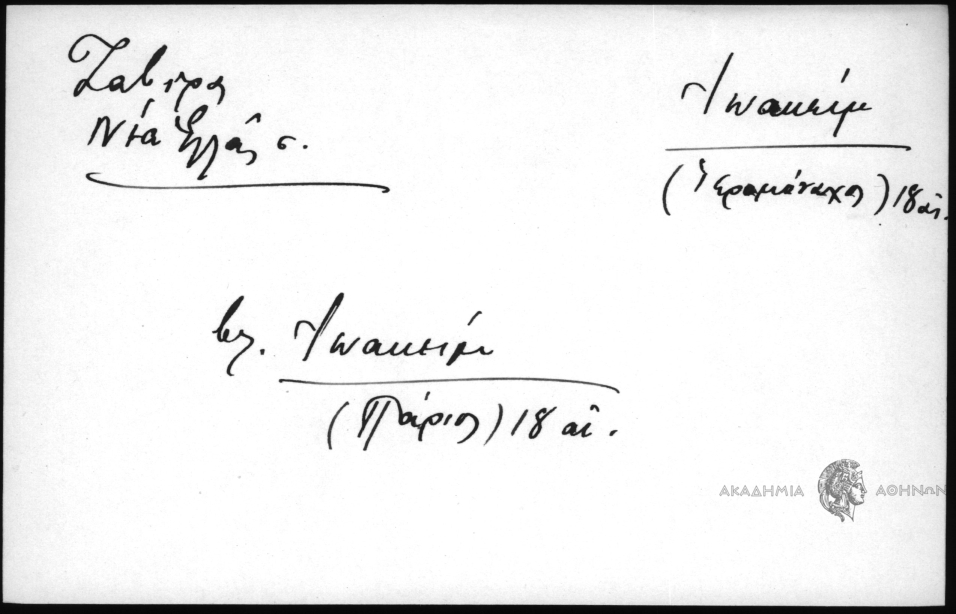 Ζαβίρα
Νέα Ἑλλὰς σ.
Ἰωακείμ
(Ἱερομόναχος) 18 αἰ.
βλ. Ἰωακείμ
(Πάριος) 18 αἰ.
ΑΚΑΔΗΜΙΑ ΑΘΗΝΩΝ